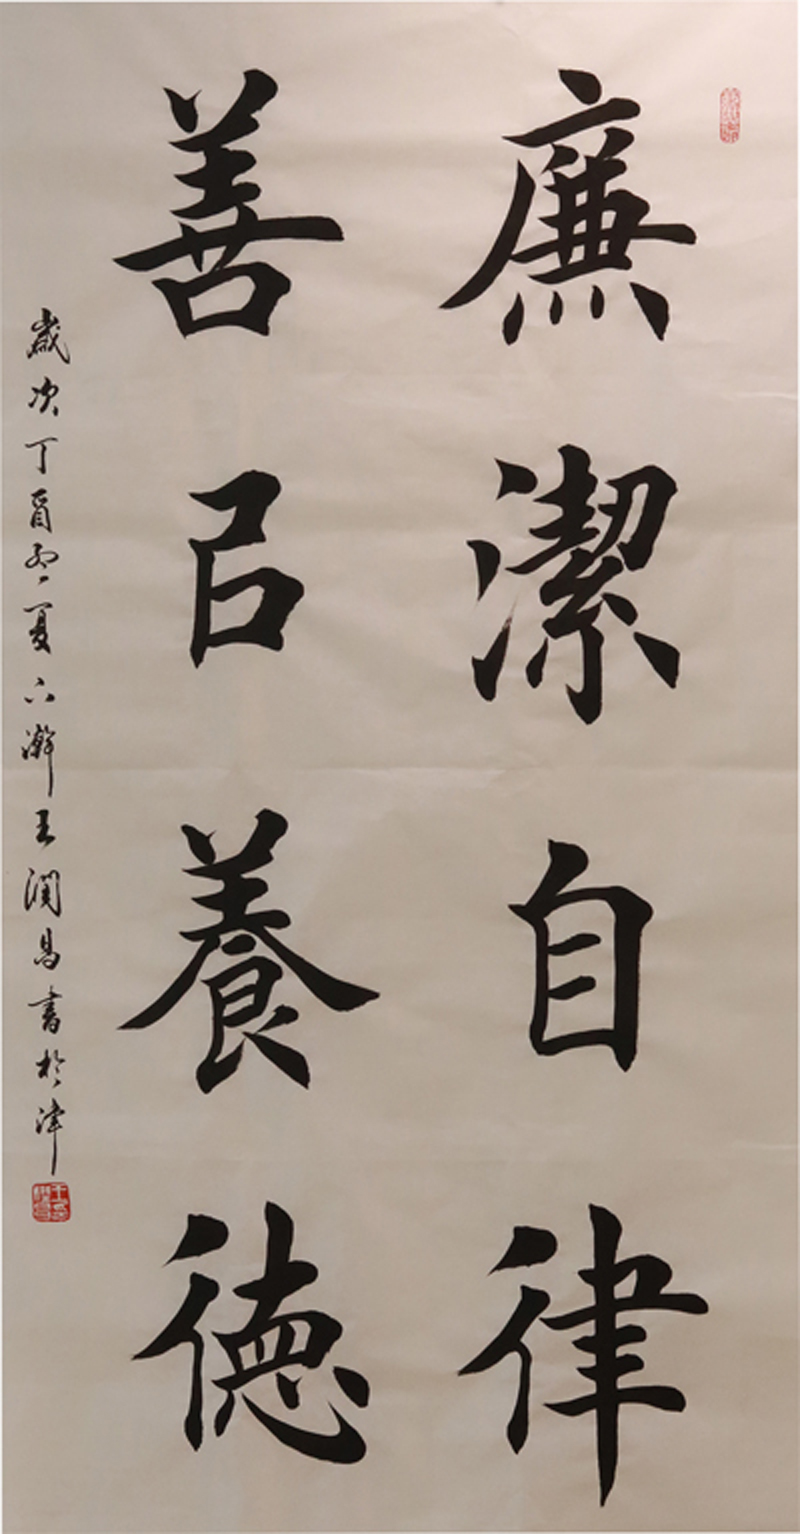 廉潔自律
善㠯養德
歲次丁酉孟夏六瀞王潤昌書於津